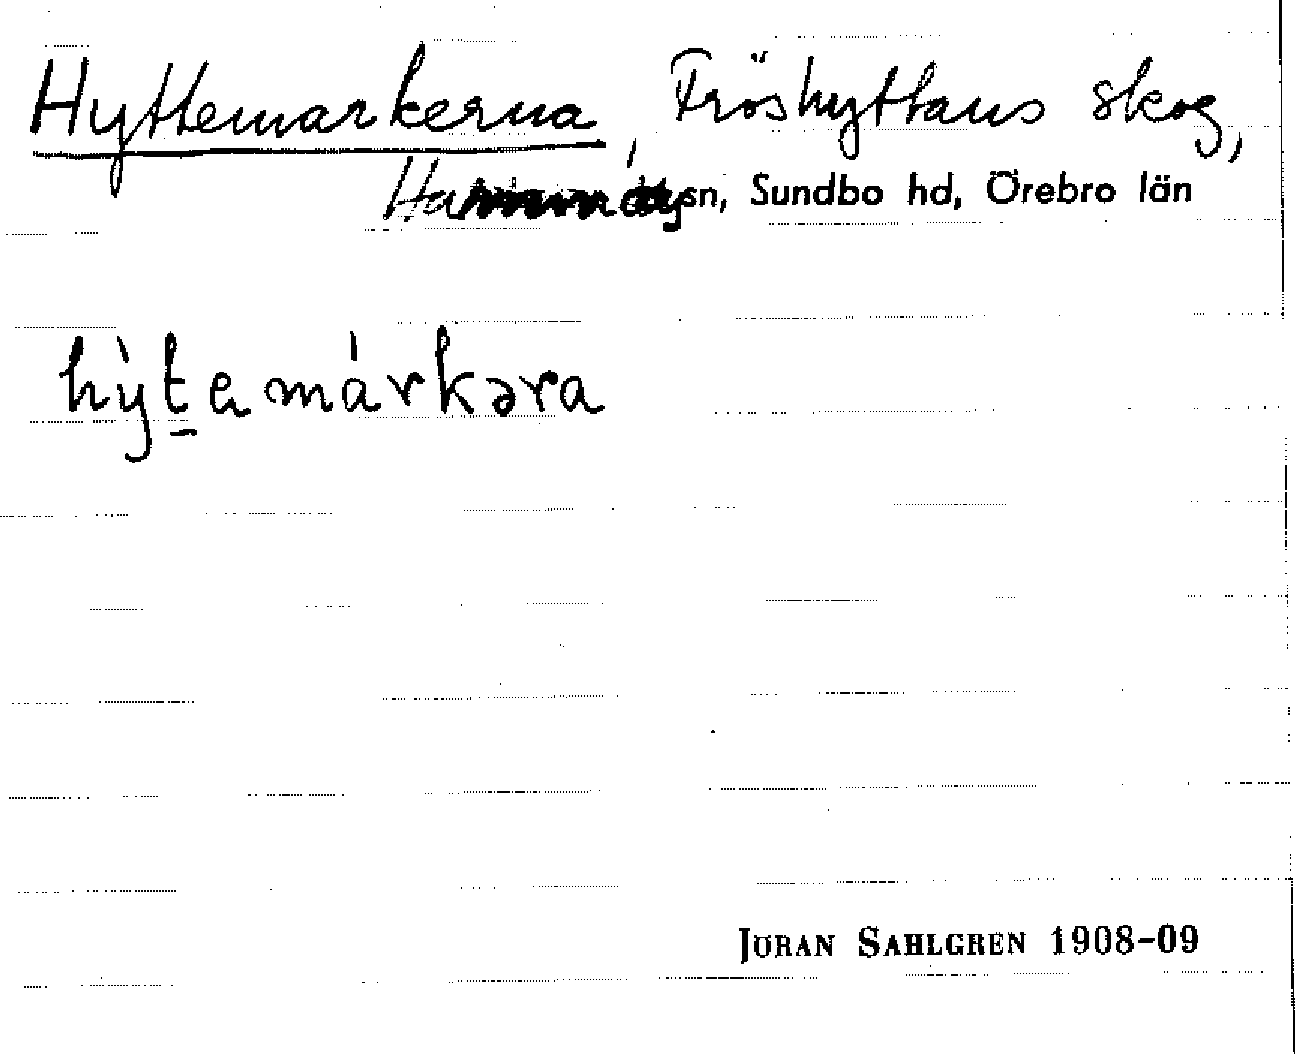 Hyttemarkerna, Fröshyttans skog,
sn, Sundbo hd, Örebro län
hỳt̲emárkəra
JÖRAN SAHLGREN 1908-09